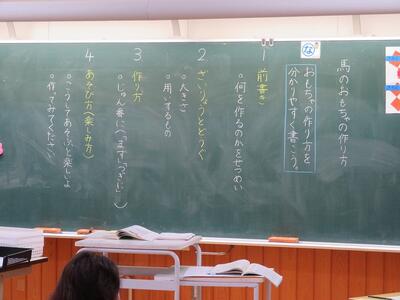 馬のおもちゃの作り方
な
おもちゃの作り方を
分かりやすく書こう。
1 前書き
○何を作るのかをせつめい
2 ざいりょうとどうぐ
○大きさ
○用いするもの
3 作り方
○じゅん番に(「まず」「つぎに」)
4 あそび方(楽しみ方)
○こうしてあそぶと楽しいよ
○作ってみてください